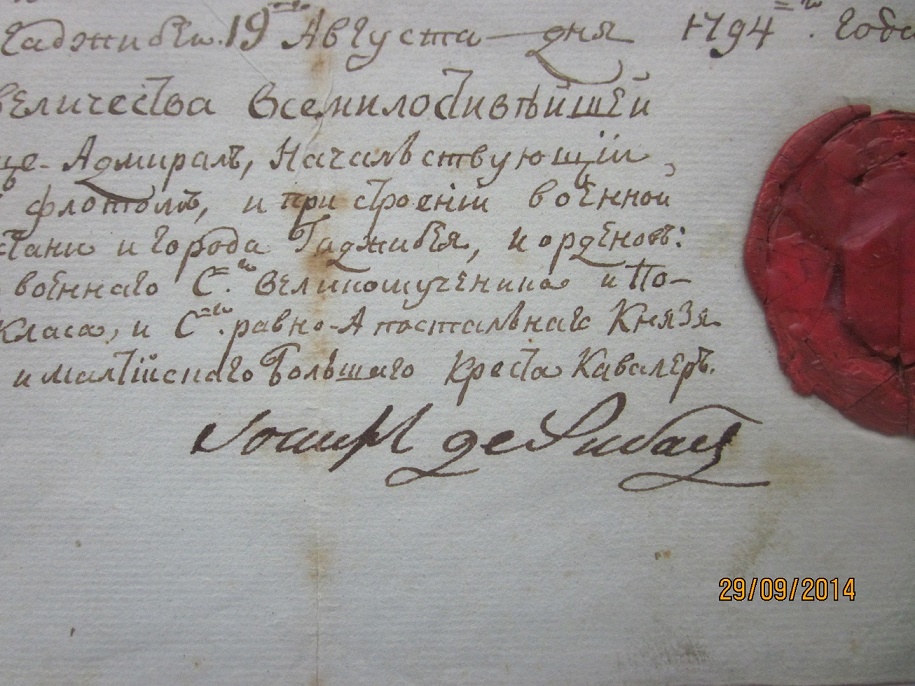 Гаджибеи. 19го Августа дня 1794го. Года
величества всемилостивѣйшей
це-Адмиралъ, Начальствующій,
флотомъ, и при строеніи военной
стани и города Гаджибея, и орденовъ:
военнаго Сго. великомученика и По-
класа, и Сго. равно-Апостольнаго Князя
и малтійскаго Большаго креста Кавалеръ.
Іосифъ де Рибасъ
29/09/2014